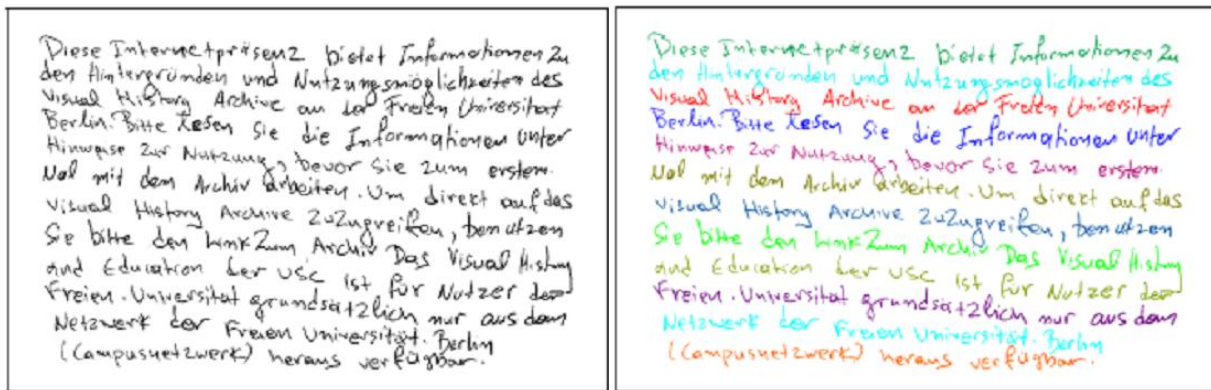 Diese Internetpräsenz bietet Informationen zu
den Hintergründen und Nutzungsmöglichkeiten des
Visual History Archive an der Freien Universität
Berlin. Bitte Lesen Sie die Informationen unter
Hinweise zur Nutzung, bevor Sie zum erstem.
Mal mit dem Archiv arbeiten. Um direkt auf das
Visual History Archive ZuZugreifen, benutzen
Sie bitte den Link Zum Archiv Das Visual History
and Education der USC ist für Nutzer der
Freien. Universität grundsätzlich nur aus dem
Netzwerk der Freien Universität. Berlin
(Campusnetzwerk) heraus verfügbar.
Diese Internetpräsenz bietet Informationen zu
den Hintergründen und Nutzungsmöglichkeiten des
Visual History Archive an der Freien Universität
Berlin. Bitte Lesen Sie die Informationen unter
Hinweise zur Nutzung, bevor Sie zum erstem.
Mal mit dem Archiv arbeiten. Um direkt auf das
Visual History Archive ZuZugreifen, benutzen
Sie bitte den Link Zum Archiv Das Visual History
and Education der USC ist für Nutzer der
Freien. Universität grundsätzlich nur aus dem
Netzwerk der Freien Universität. Berlin
(Campusnetzwerk) heraus verfügbar.